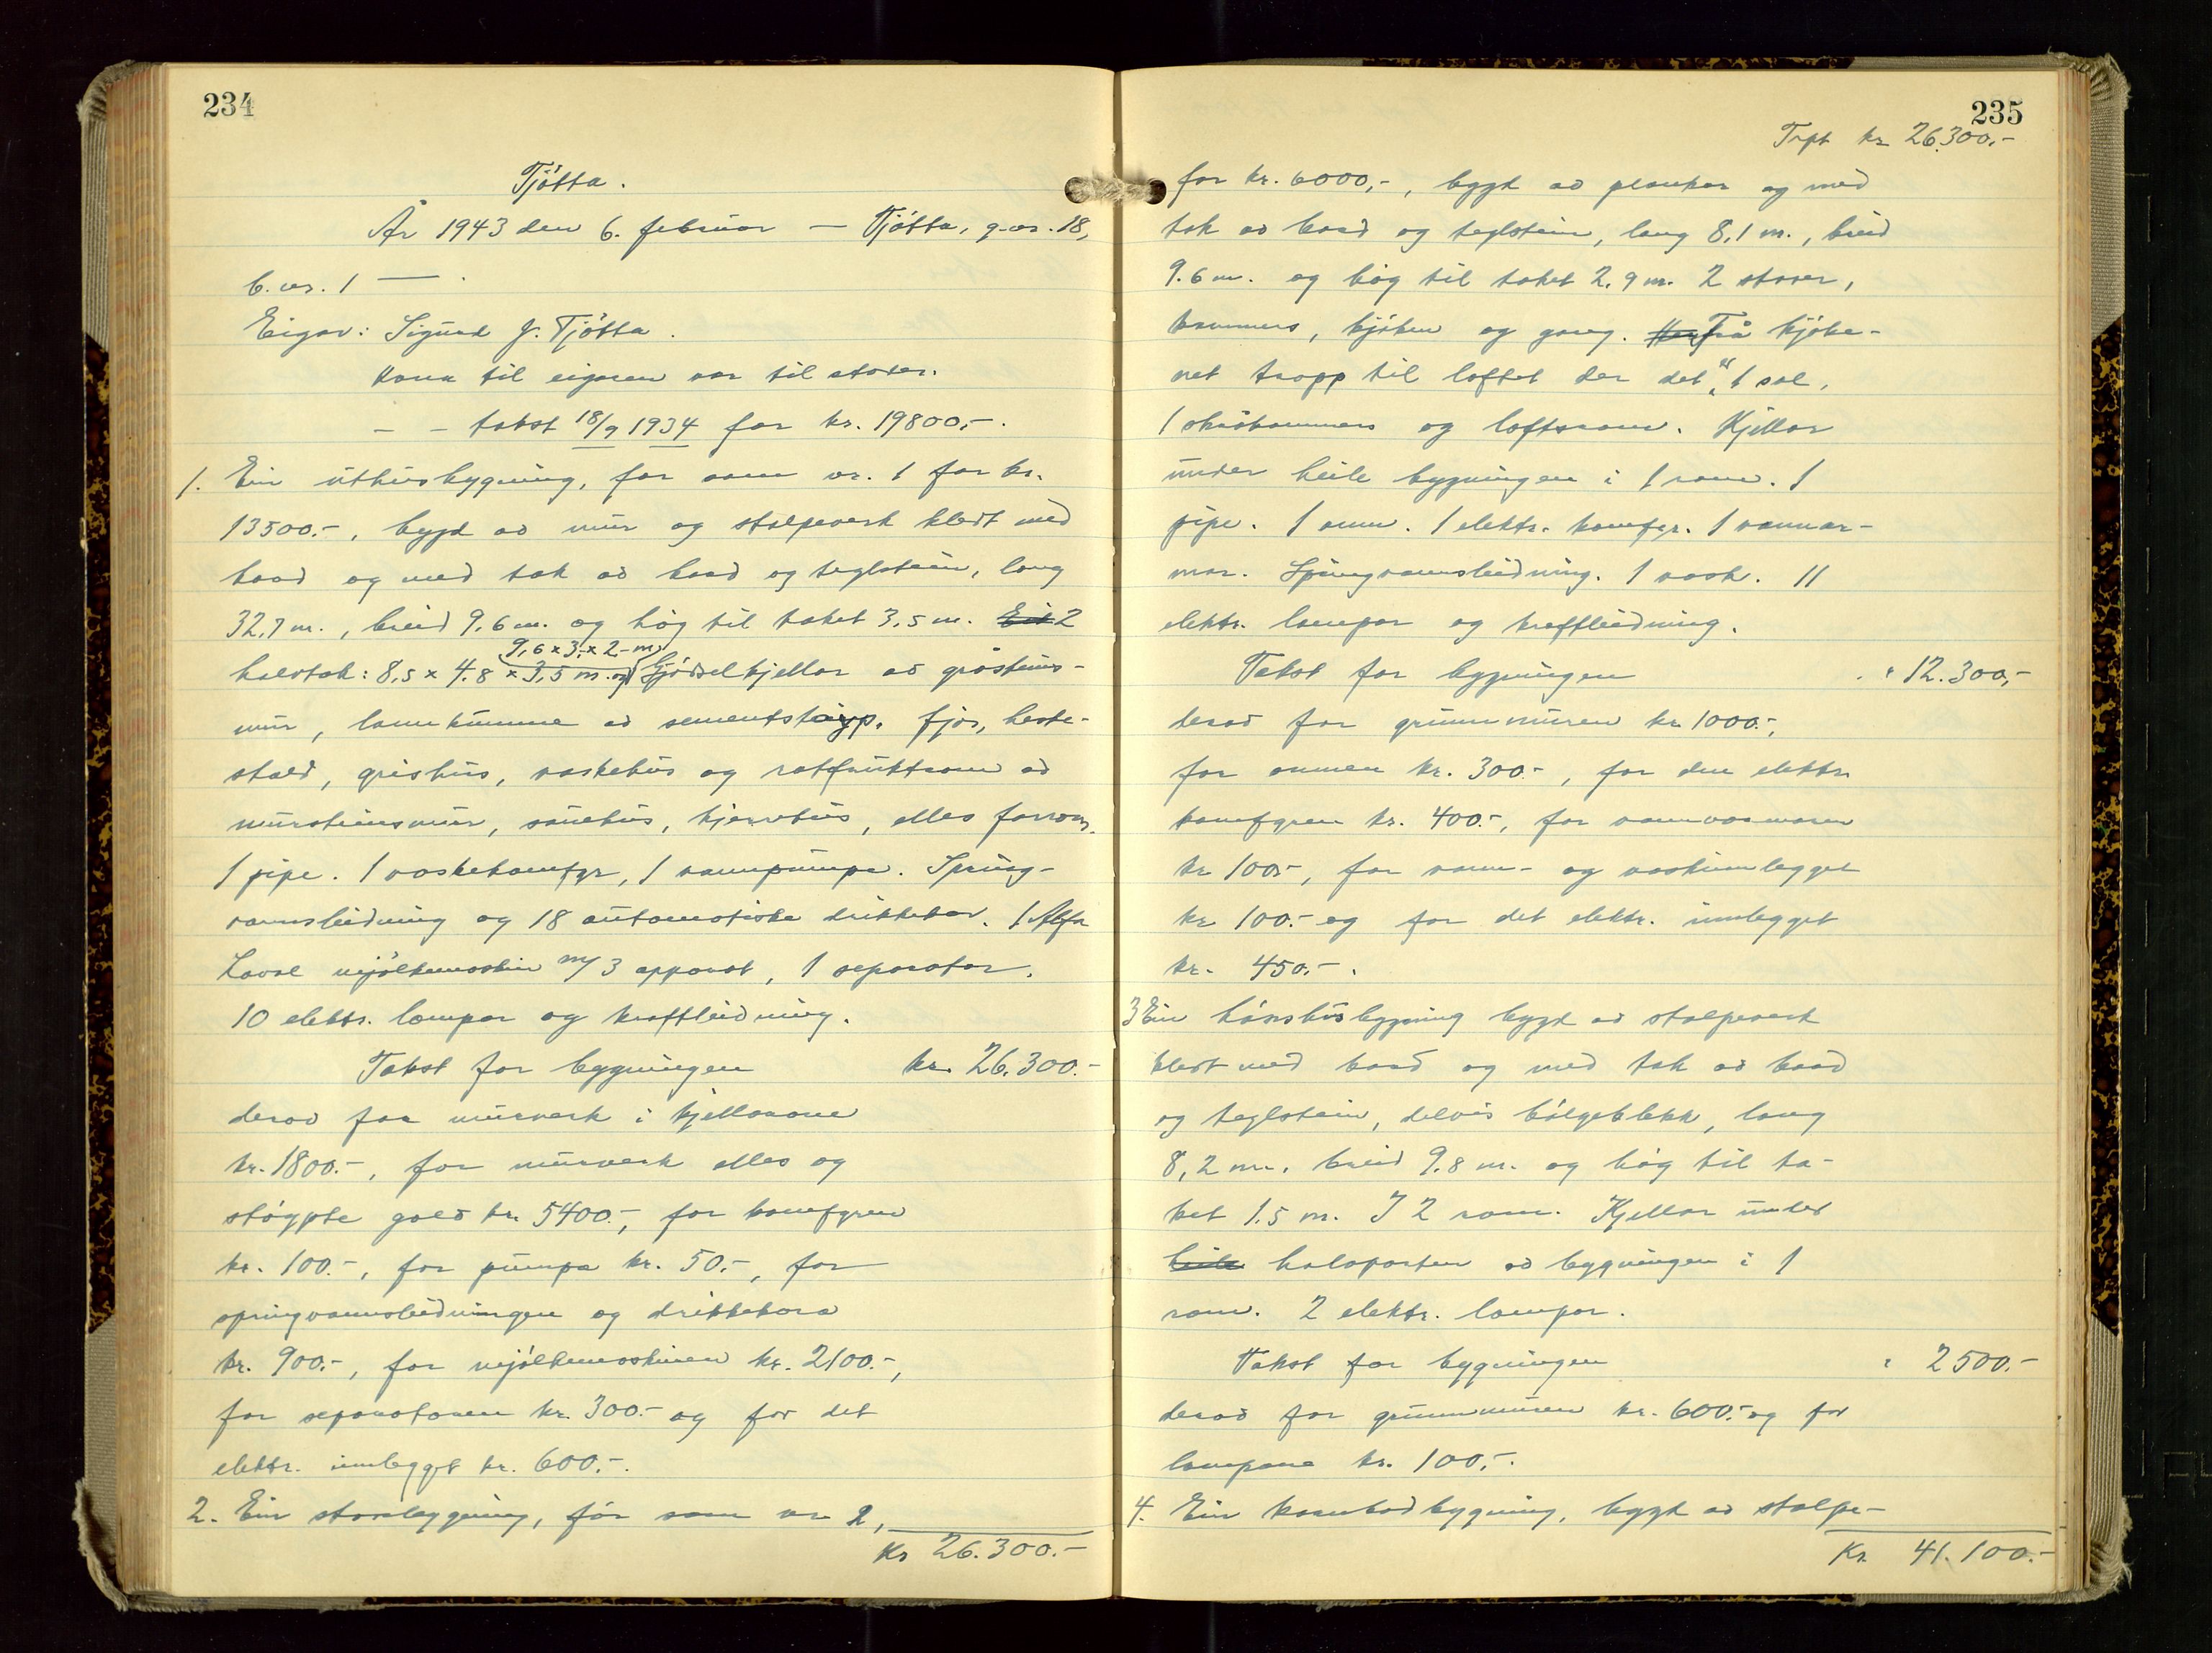 234
Tjøtta.
År 1943 den 6. februar — Tjøtta, g.nr. 18,
b.nr. 1 — .
Eigar: Sigurd J. Tjøtta.
Kona til eigaren var til stades.
- - takst 18/9 1934 for kr. 19800,-.
1. Ein uthusbygning, før som nr. 1 for kr.
13500.-, bygd av mur og stolpeverk kledt med
bord og med tak av bord og teglstein, lang
32,7 m., breid 9,6 m. og høg til taket 3,5 m. Eit 2
9,6 x 3,- x 2,- m.
halvtak: 8,5 x 4,8 x 3,5 m. og Gjødselkjellar av gråsteins-
mur, lannkumme av sementstøyp. fjøs, heste-
stald, grishus, vaskehus og rotfruktrom av
mursteinsmur, sauehus, kjerrehus, elles forrom.
1 pipe. 1 vaskekomfyr, 1 vannpumpe. Spring-
vannsleidning og 18 automatiske drikkekar. 1 Alfa
Laval mjølkemaskin m/ 3 apparat, 1 separator.
10 elektr. lampor og kraftleidning.
Takst for bygningen kr. 26.300.-
derav for murverk i kjellarane
kr. 1800.-, for murverk elles og
støypte golv kr. 5400.-, for komfyren
kr. 100.-, for pumpa kr. 50.-, for
springvannsleidningen og drikkekara
kr. 900.-, for mjølkemaskinen kr. 2100.-,
for separatoren kr. 300.- og for det
elektr. innlegget kr. 600.-.
2. Ein storebygning, før som nr 2,
Kr 26.300.-
235
Trpt kr 26.300.-
for kr. 6000,-, bygd av plankar og med
tak av bord og teglstein, lang 8,1 m., breid
9.6 m. og høg til taket 2,9 m. 2 stover,
kammers, kjøken og gang. Her Frå kjøke-
net tropp til loftet der det 1 sal,
1 skråkammers og loftsrom. Kjellar
under heile bygningen i 1 rom. 1
pipe. 1 omn. 1 elektr. komfyr. 1 vannvar-
mar. Springvannsleidning. 1 vask. 11
elektr. lampor og kraftleidning.
Takst for bygningen " 12.300,-
derav for grunnmuren kr 1000.-,
for omnen kr. 300.-, for den elektr.
komfyren kr. 400.-, for vannvarmaren
kr 100.-, for vann- og vaskinnlegget
kr 100.- og for det elektr. innlegget
kr. 450.-.
3 Ein hønshusbygning bygd av stolpeverk
kledt med bord og med tak av bord
og teglstein, delvis bølgeblekk, lang
8,2 m., breid 9.8 m. og høg til ta-
ket 1.5 m. I 2 rom. Kjellar under
heile halvparten av bygningen i 1
rom. 2 elektr. lampor.
Takst for bygningen " 2500.-
derav for grunnmuren kr. 600.- og for
lampane kr. 100.-.
4. Ein kornbodbygning, bygd av stolpe-
Kr. 41.100.-